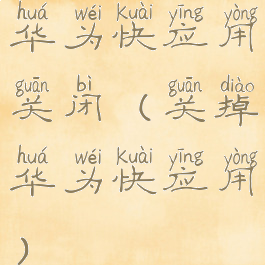 huá wéi kuài yīng yòng
华为快应用
guān bì guān diào
关闭(关掉
huá wéi kuài yīng yòng
华为快应用
)